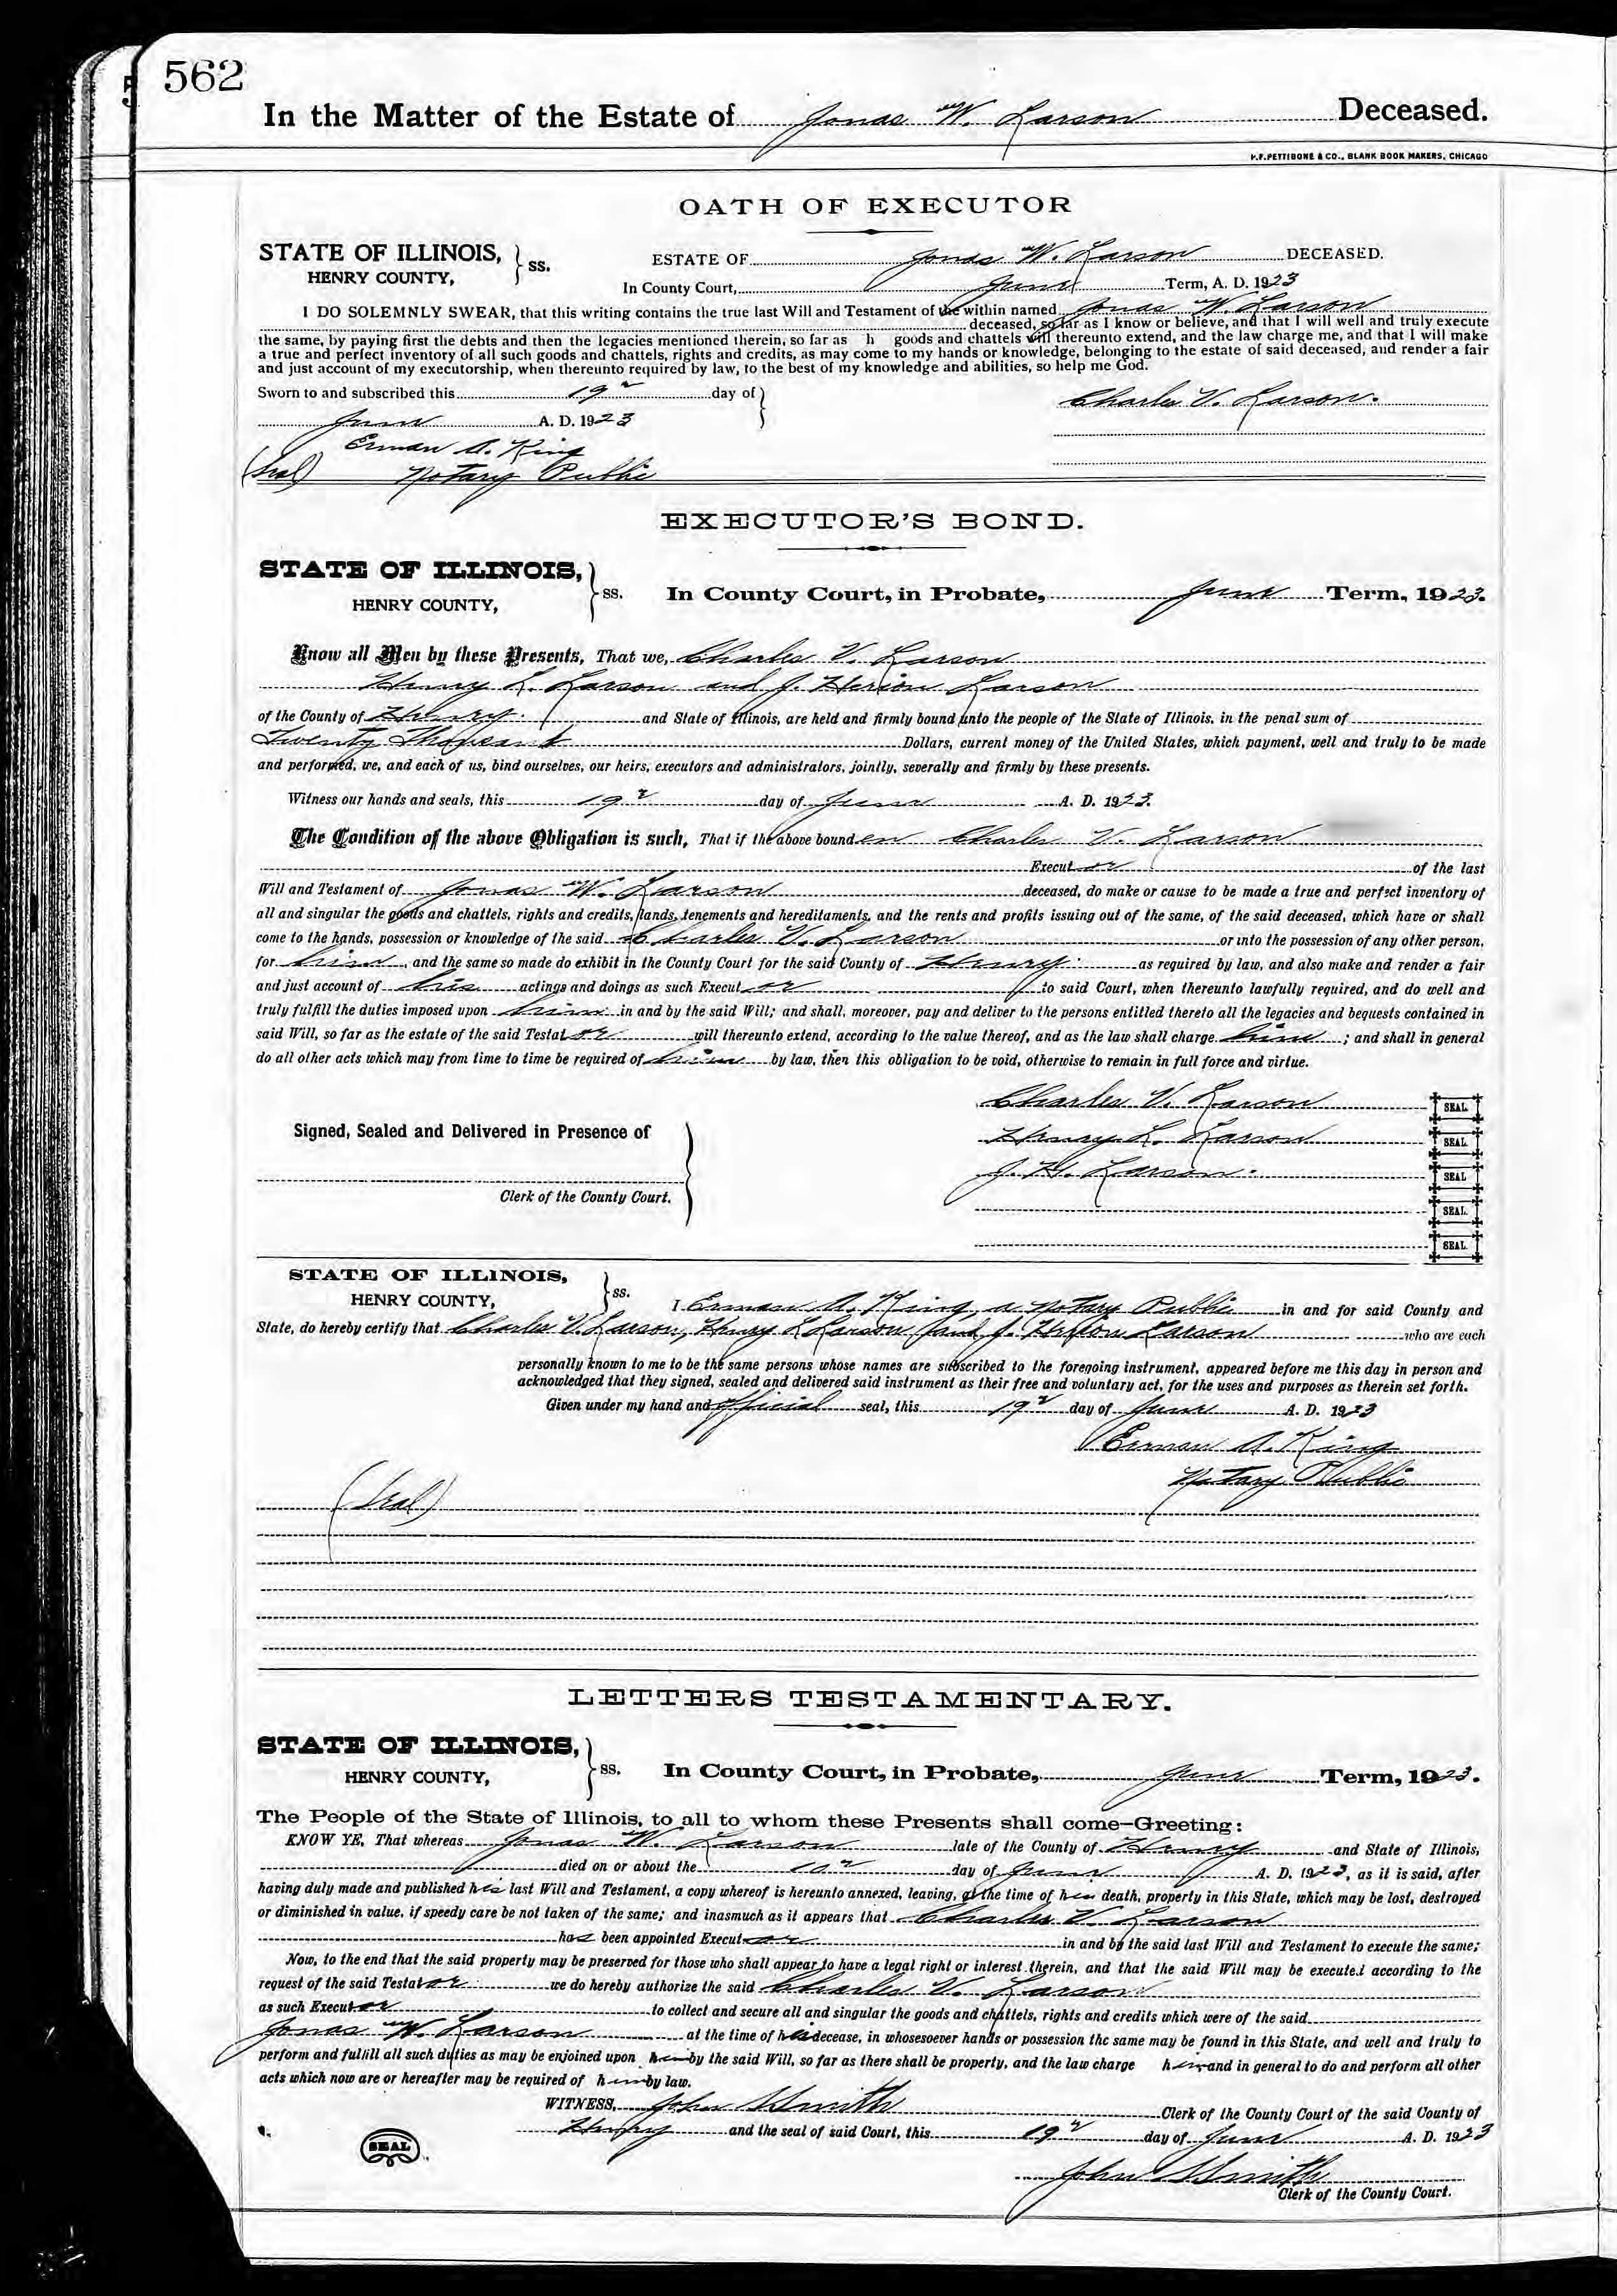 562
In the Matter of the Estate of Jonas W. Larson Deceased.
P.F.PETTIBONE & CO., BLANK BOOK MAKERS, CHICAGO
OATH OF EXECUTOR
STATE OF ILLINOIS, } ss. ESTATE OF Jonas W. Larson DECEASED.
HENRY COUNTY, In County Court, June Term, A. D. 1923
I DO SOLEMNLY SWEAR, that this writing contains the true last Will and Testament of the within named Jonas W. Larson
deceased, so far as I know or believe, and that I will well and truly execute
the same, by paying first the debts and then the legacies mentioned therein, so far as h goods and chattels will thereunto extend, and the law charge me, and that I will make
a true and perfect inventory of all such goods and chattels, rights and credits, as may come to my hands or knowledge, belonging to the estate of said deceased, and render a fair
and just account of my executorship, when thereunto required by law, to the best of my knowledge and abilities, so help me God.
Sworn to and subscribed this 19 day of } Charles V. Larson.
June A. D. 1923
Erman A. King
(Seal) Notary Public
EXECUTOR'S BOND.
STATE OF ILLINOIS, } ss. In County Court, in Probate, June Term, 1923.
HENRY COUNTY,
Know all Men by these Presents, That we, Charles V. Larson
Henry L. Larson and J. Larson
of the County of Henry and State of Illinois, are held and firmly bound unto the people of the State of Illinois, in the penal sum of
Twenty Thousand Dollars, current money of the United States, which payment, well and truly to be made
and performed, we, and each of us, bind ourselves, our heirs, executors and administrators, jointly, severally and firmly by these presents.
Witness our hands and seals, this 19 day of June A. D. 1923.
The Condition of the above Obligation is such, That if the above bounden Charles V. Larson
Executor of the last
Will and Testament of Jonas W. Larson deceased, do make or cause to be made a true and perfect inventory of
all and singular the goods and chattels, rights and credits, lands, tenements and hereditaments, and the rents and profits issuing out of the same, of the said deceased, which have or shall
come to the hands, possession or knowledge of the said Charles V. Larson or into the possession of any other person,
for him, and the same so made do exhibit in the County Court for the said County of Henry as required by law, and also make and render a fair
and just account of his actings and doings as such Executor to said Court, when thereunto lawfully required, and do well and
truly fulfill the duties imposed upon him in and by the said Will; and shall, moreover, pay and deliver to the persons entitled thereto all the legacies and bequests contained in
said Will, so far as the estate of the said Testator will thereunto extend, according to the value thereof, and as the law shall charge him; and shall in general
do all other acts which may from time to time be required of him by law, then this obligation to be void, otherwise to remain in full force and virtue.
Charles V. Larson SEAL.
Signed, Sealed and Delivered in Presence of Henry L. Larson SEAL.
J. H. Larson. SEAL
Clerk of the County Court. SEAL.
SEAL.
STATE OF ILLINOIS, } ss.
HENRY COUNTY, I Erman A. King, a Notary Public in and for said County and
State, do hereby certify that Charles V. Larson, Henry L Larson and J. Larson who are each
personally known to me to be the same persons whose names are subscribed to the foregoing instrument, appeared before me this day in person and
acknowledged that they signed, sealed and delivered said instrument as their free and voluntary act, for the uses and purposes as therein set forth.
Given under my hand and official seal, this 19 day of June A. D. 1923
Erman A. King
Notary Public
(Seal)
LETTERS TESTAMENTARY.
STATE OF ILLINOIS, } ss. In County Court, in Probate, June Term, 1923.
HENRY COUNTY,
The People of the State of Illinois, to all to whom these Presents shall come—Greeting:
KNOW YE, That whereas Jonas W. Larson late of the County of Henry and State of Illinois,
died on or about the 10 day of June A. D. 1923, as it is said, after
having duly made and published his last Will and Testament, a copy whereof is hereunto annexed, leaving, at the time of his death, property in this State, which may be lost, destroyed
or diminished in value, if speedy care be not taken of the same; and inasmuch as it appears that Charles V. Larson
has been appointed Executor in and by the said last Will and Testament to execute the same;
Now, to the end that the said property may be preserved for those who shall appear to have a legal right or interest therein, and that the said Will may be executed according to the
request of the said Testator we do hereby authorize the said Charles V. Larson
as such Executor to collect and secure all and singular the goods and chattels, rights and credits which were of the said
Jonas W. Larson at the time of his decease, in whosesoever hands or possession the same may be found in this State, and well and truly to
perform and fulfill all such duties as may be enjoined upon him by the said Will, so far as there shall be property, and the law charge him and in general to do and perform all other
acts which now are or hereafter may be required of him by law.
WITNESS, John Smith Clerk of the County Court of the said County of
Henry and the seal of said Court, this 19 day of June A. D. 1923
SEAL
John Smith
Clerk of the County Court.